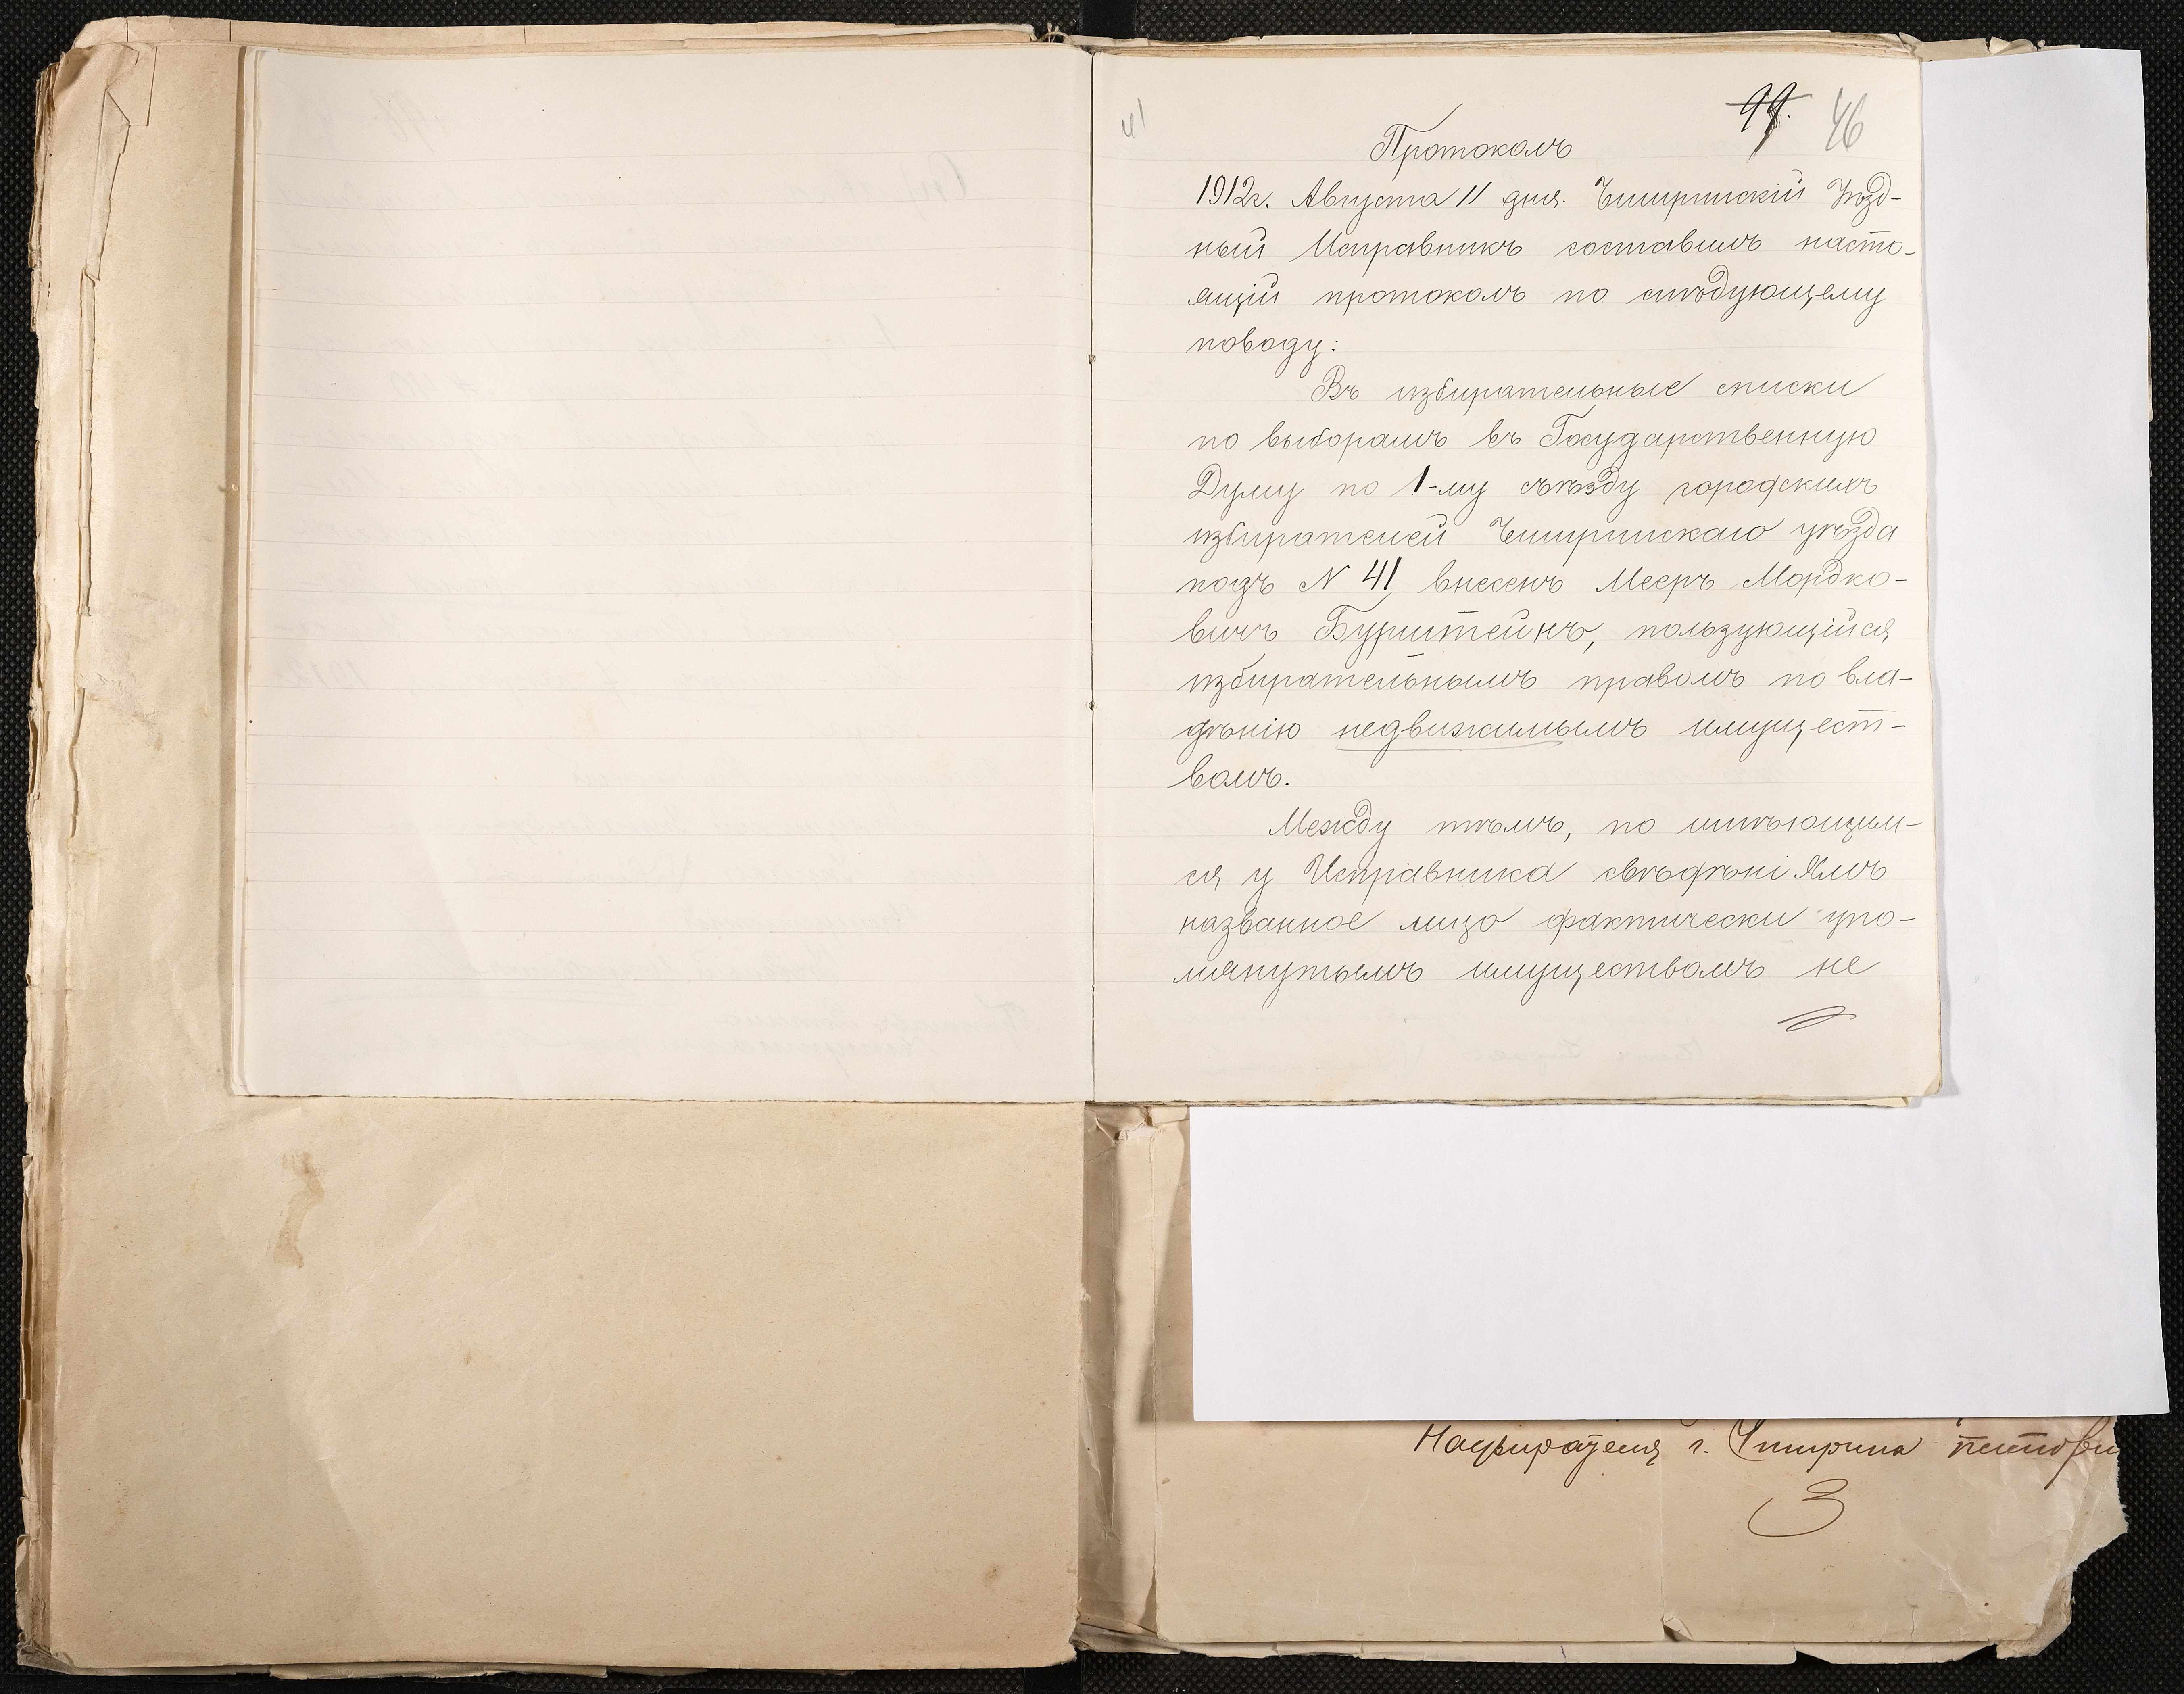 41
99. 46
Протоколъ
1912г. Августа 11 дня. Чигиринскій Уѣзд-
ный Исправникъ составилъ насто-
ящій протоколъ по слѣдующему
поводу:
Въ избирательные списки
по выборамъ въ Государственную
Думу по 1-му съѣзду городскихъ
избирателей Чигиринскаго уѣзда
подъ N 41 внесенъ Мееръ Мордко-
вичъ Бурштейнъ, пользующійся
избирательнымъ правомъ по вла-
дѣнію недвижимымъ имущест-
вомъ.
Между тѣмъ, по имѣющим-
ся у Исправника свѣдѣніямъ
названное лицо фактически упо-
мянутымъ имуществомъ не
Надзирателя г. Чигирина
3